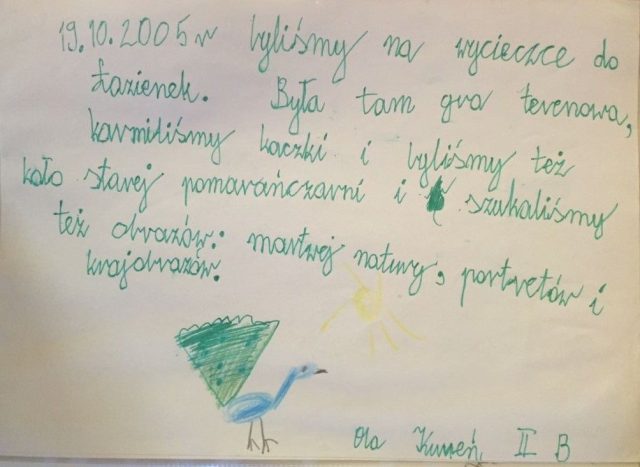 19.10.2005 r byliśmy na wycieczce do
Łazienek. Była tam gra terenowa,
karmiliśmy kaczki i byliśmy też
koło starej pomarańczarni i szukaliśmy
też obrazów: martwej natury, portretów i
krajobrazów.
Ola II B